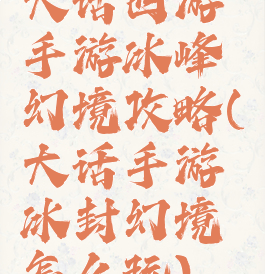 大话西游
手游冰峰
幻境攻略(
大话手游
冰封幻境
怎么玩)